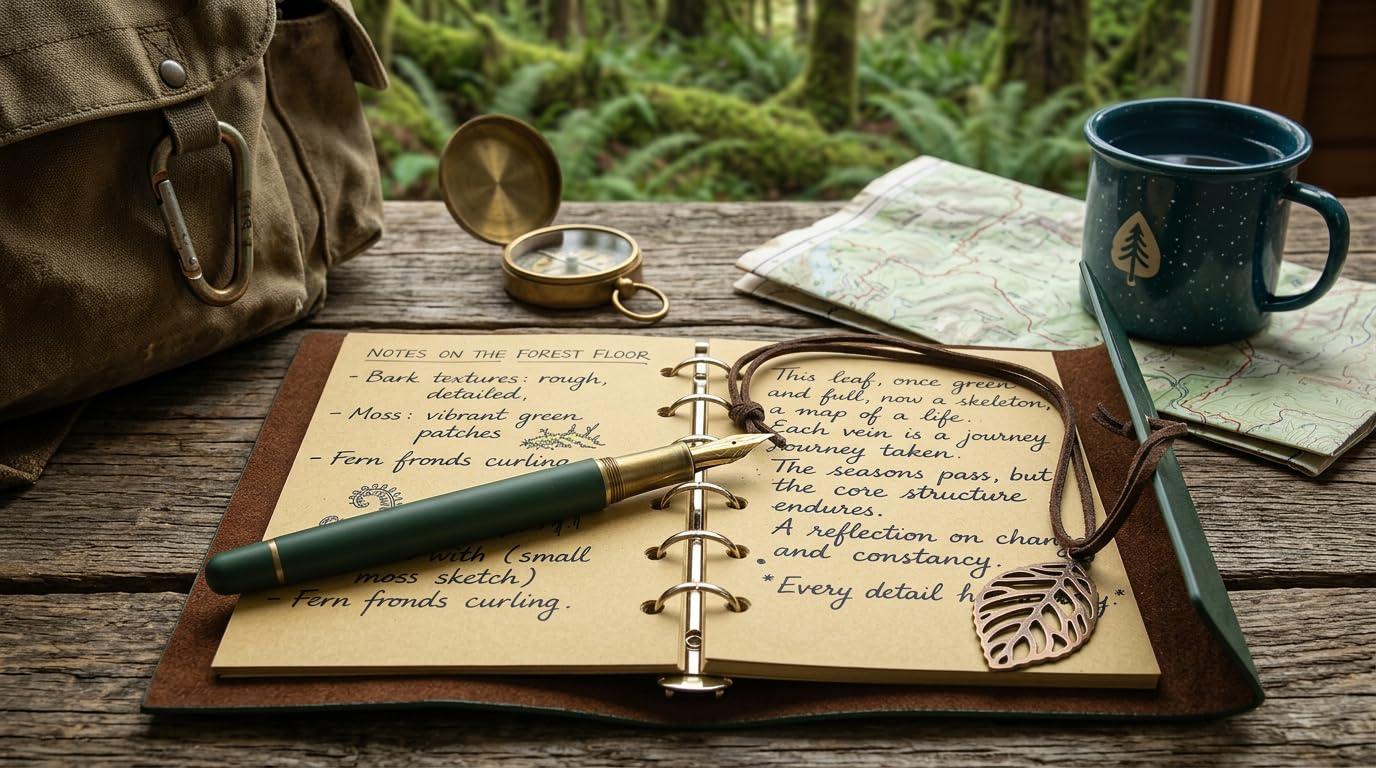 NOTES ON THE FOREST FLOOR
- Bark textures: rough,
detailed,
- Moss: vibrant green
patches
- Fern fronds curling
with (small
moss sketch)
- Fern fronds curling.
This leaf, once green
and full, now a skeleton,
a map of a life.
Each vein is a journey
journey taken.
The seasons pass, but
the core structure
endures.
A reflection on
and constancy.
*Every detail